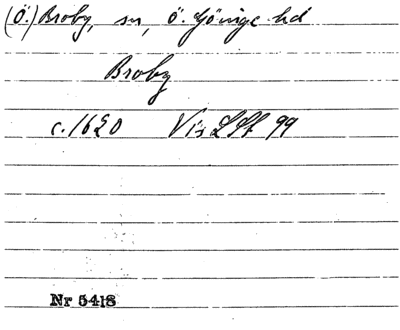 (Ö.) Broby, sn, Ö. Göinge hd
Broby
c. 1620 Vis LSt 99
Nr 5418